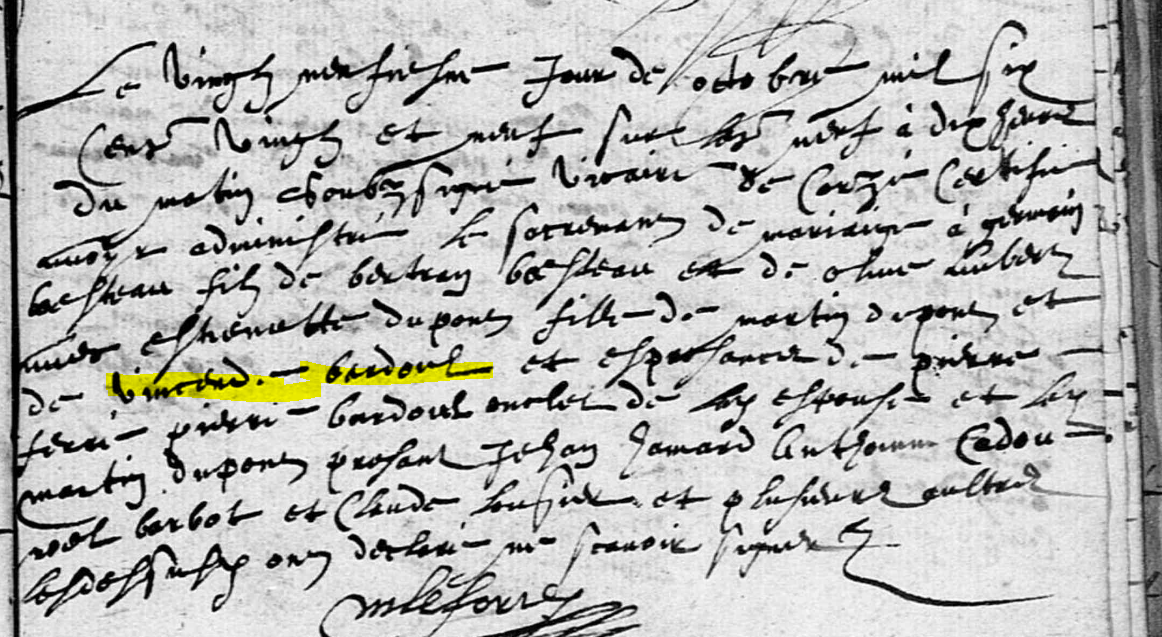 Le vingt neufiesme Jour de octobre mil six
Cens vingt et neuf sur les neuf à dix heures
du matin soubzsigné vicaire de Corzé Certifie
avoyr administré le sacrement de mariaige à germain
besteau filz de bertran besteau et de olive
avec estiennette dupont fille de martin dupont et
de vincend bardoul et espousance de pierre
ferré pierre bardoul oncles de lad espouse et led
martin dupont presant Jehan hamard Anthoinne Cadou
noel barbot et Claude et plusieurs aultres
lesdessusd ont declaré ne scavoir signer